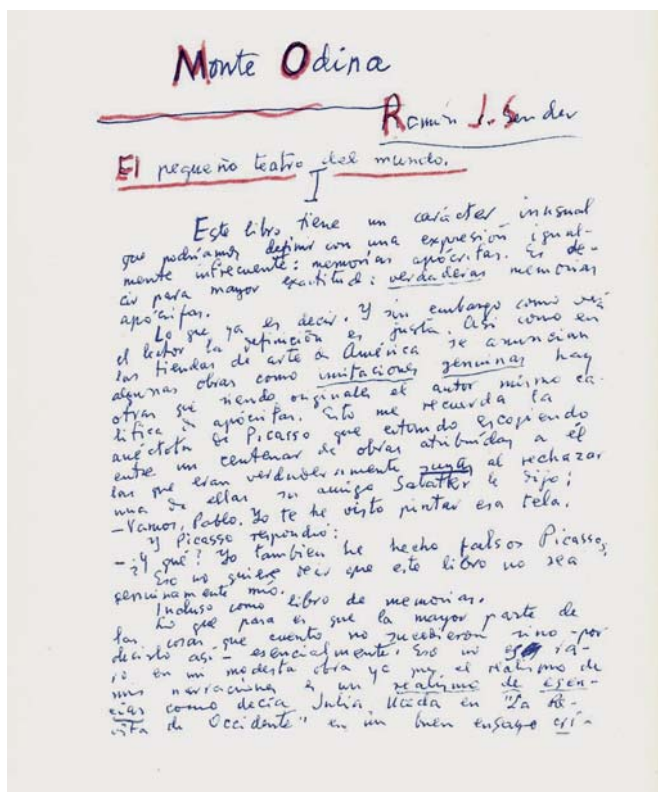 Monte Odina
Ramón J. Sender
El pequeño teatro del mundo.
I
Este libro tiene un carácter inusual
que podríamos definir con una expresión igual-
mente infrecuente: memorias apócrifas. Es de-
cir para mayor exactitud: verdaderas memorias
apócrifas.
Lo que ya es decir. Y sin embargo como verá
el lector la definición es justa. Así como en
las tiendas de arte de América se anuncian
algunas obras como imitaciones genuinas hay
otras que siendo originales el autor mismo ca-
lifica de apócrifas. Esto me recuerda la
anécdota de Picasso que estando escogiendo
entre un centenar de obras atribuidas a él
las que eran verdaderamente suyas al rechazar
una de ellas su amigo Sabatker le dijo:
-Vamos, Pablo. Yo te he visto pintar esa tela.
Y Picasso respondió:
-¿Y qué? Yo tambien he hecho falsos Picassos,
Eso no quiere decir que este libro no sea
genuinamente mío.
Incluso como libro de memorias.
Lo que pasa es que la mayor parte de
las cosas que cuento no sucedieron sino -por
decirlo así- esencialmente. Eso no es ra-
ro en mi modesta obra ya que el realismo de
mis narraciones es un realismo de esen-
cias como decía Julia Uceda en "La Re-
vista de Occidente" en un buen ensayo crí-